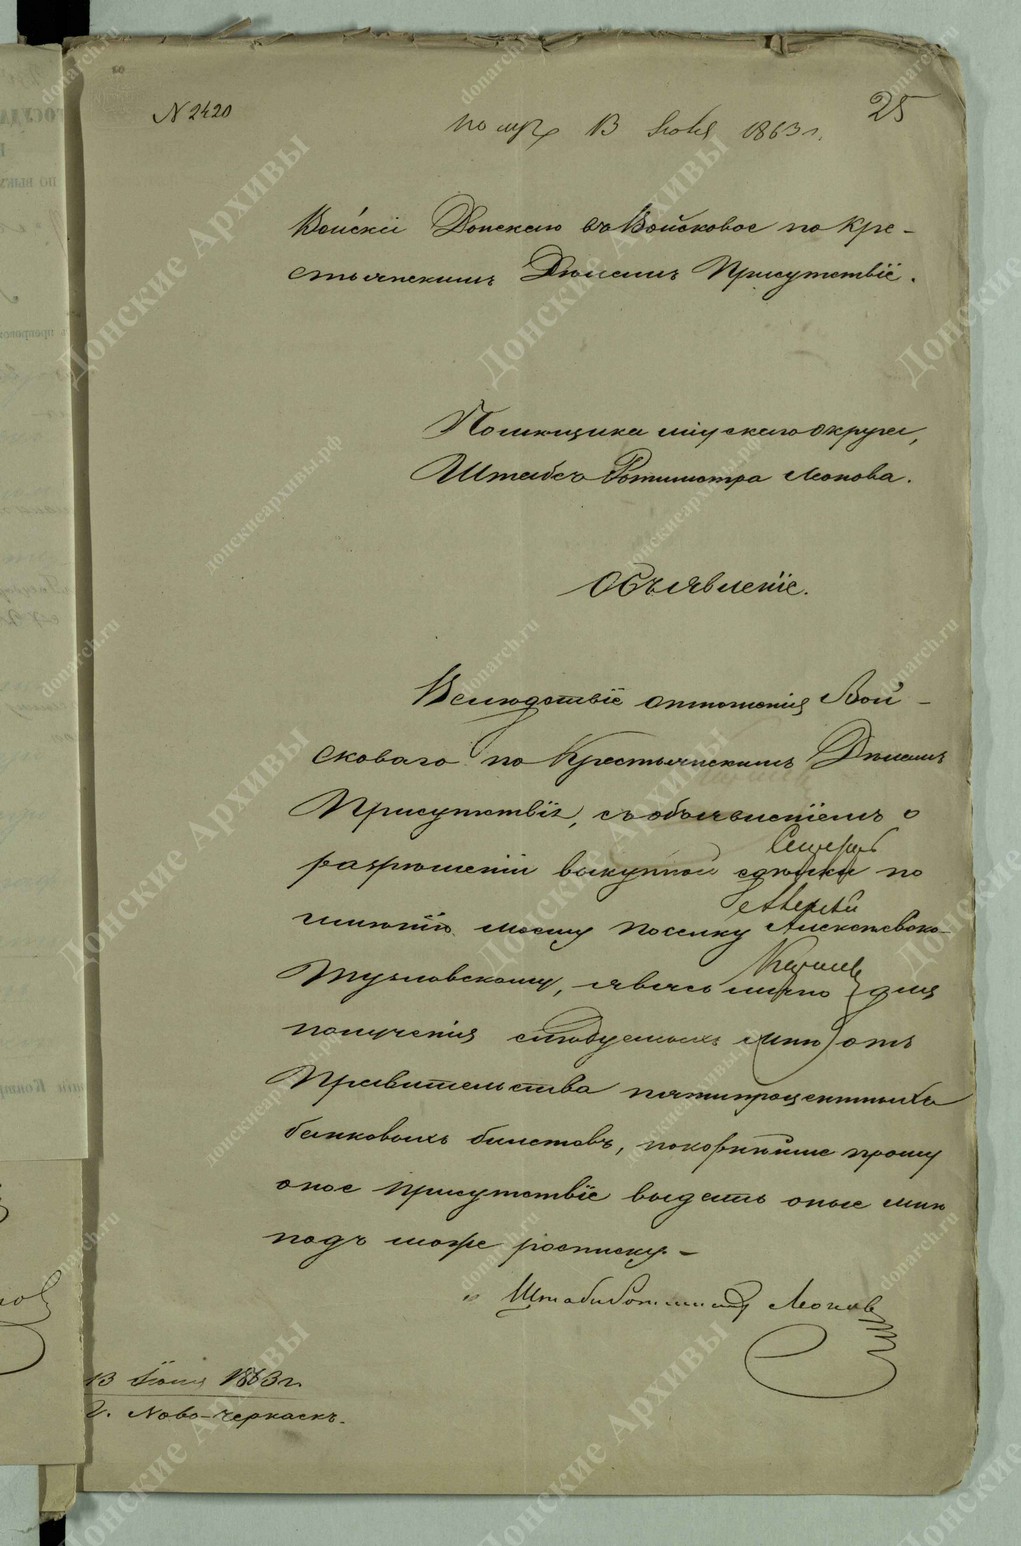 N 2420
25
получ 13 Июня 1863 г.
Войска Донскаго въ Войсковое по кре-
стьянскимъ Дѣламъ Присутствіе.
Помѣщика Міускаго округа,
Штабсъ Ротмистра Леонова.
Объявленіе.
Вслѣдствіе отношенія Вой-
сковаго по Крестьянскимъ Дѣламъ
Присутствія, съ объявленіемъ о
разрѣшеніи выкупной сдѣлки по
имѣнію моему поселку Алексѣевско-
Тузловскому, явясь лично для
полученія слѣдуемыхъ мнѣ отъ
Правительства пятипроцентныхъ
банковыхъ билетовъ, покорнѣйше прошу
оное присутствіе выдать оные мнѣ
подъ мою же росписку.-
Штабсъ Ротмистръ Леоновъ
13 Іюня 1863 г.
г. Ново-Черкаскъ.
Донские Архивы
donarch.ru
донскиеархивы.рф